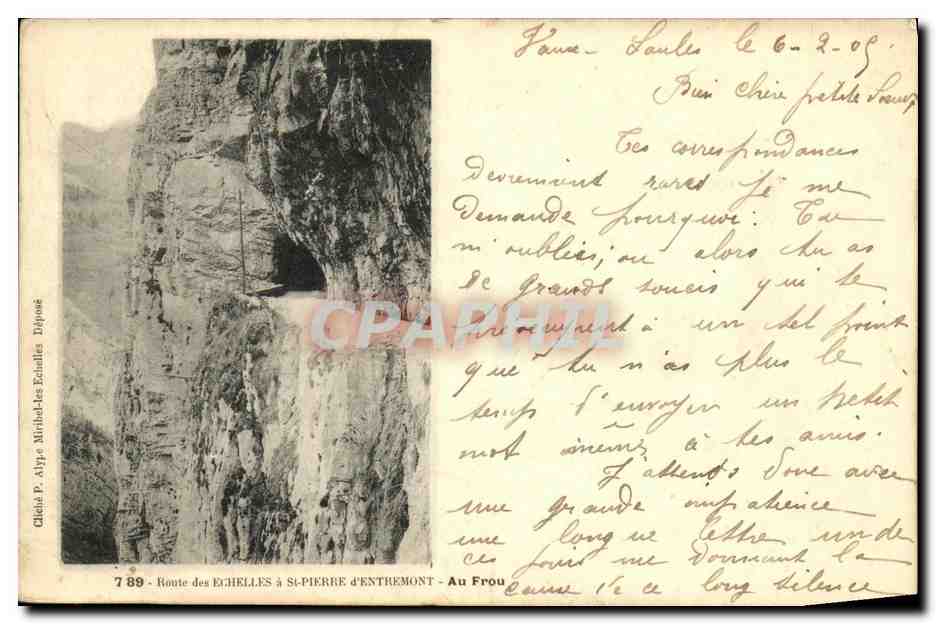 Vaux-Saules le 6-2-05.
Bien chère petite Soeur,
Tes correspondances
devrienent rares je me
demande pourquoi: Tu
m'oublies, ou alors tu as
de grands soucis qui te
préoccupent à un tel point
que tu n'as plus le
temps d'envoyer un petit
mot même à tes amis.
J'attends donc avec
une grande impatience
une longue lettre un de
ces jours me donnant la
cause de ce long silence
Cliché P. Alype Miribel-les Echelles Déposé
CPAPHIL
789 - Route des ECHELLES à St-PIERRE d'ENTREMONT - Au Frou